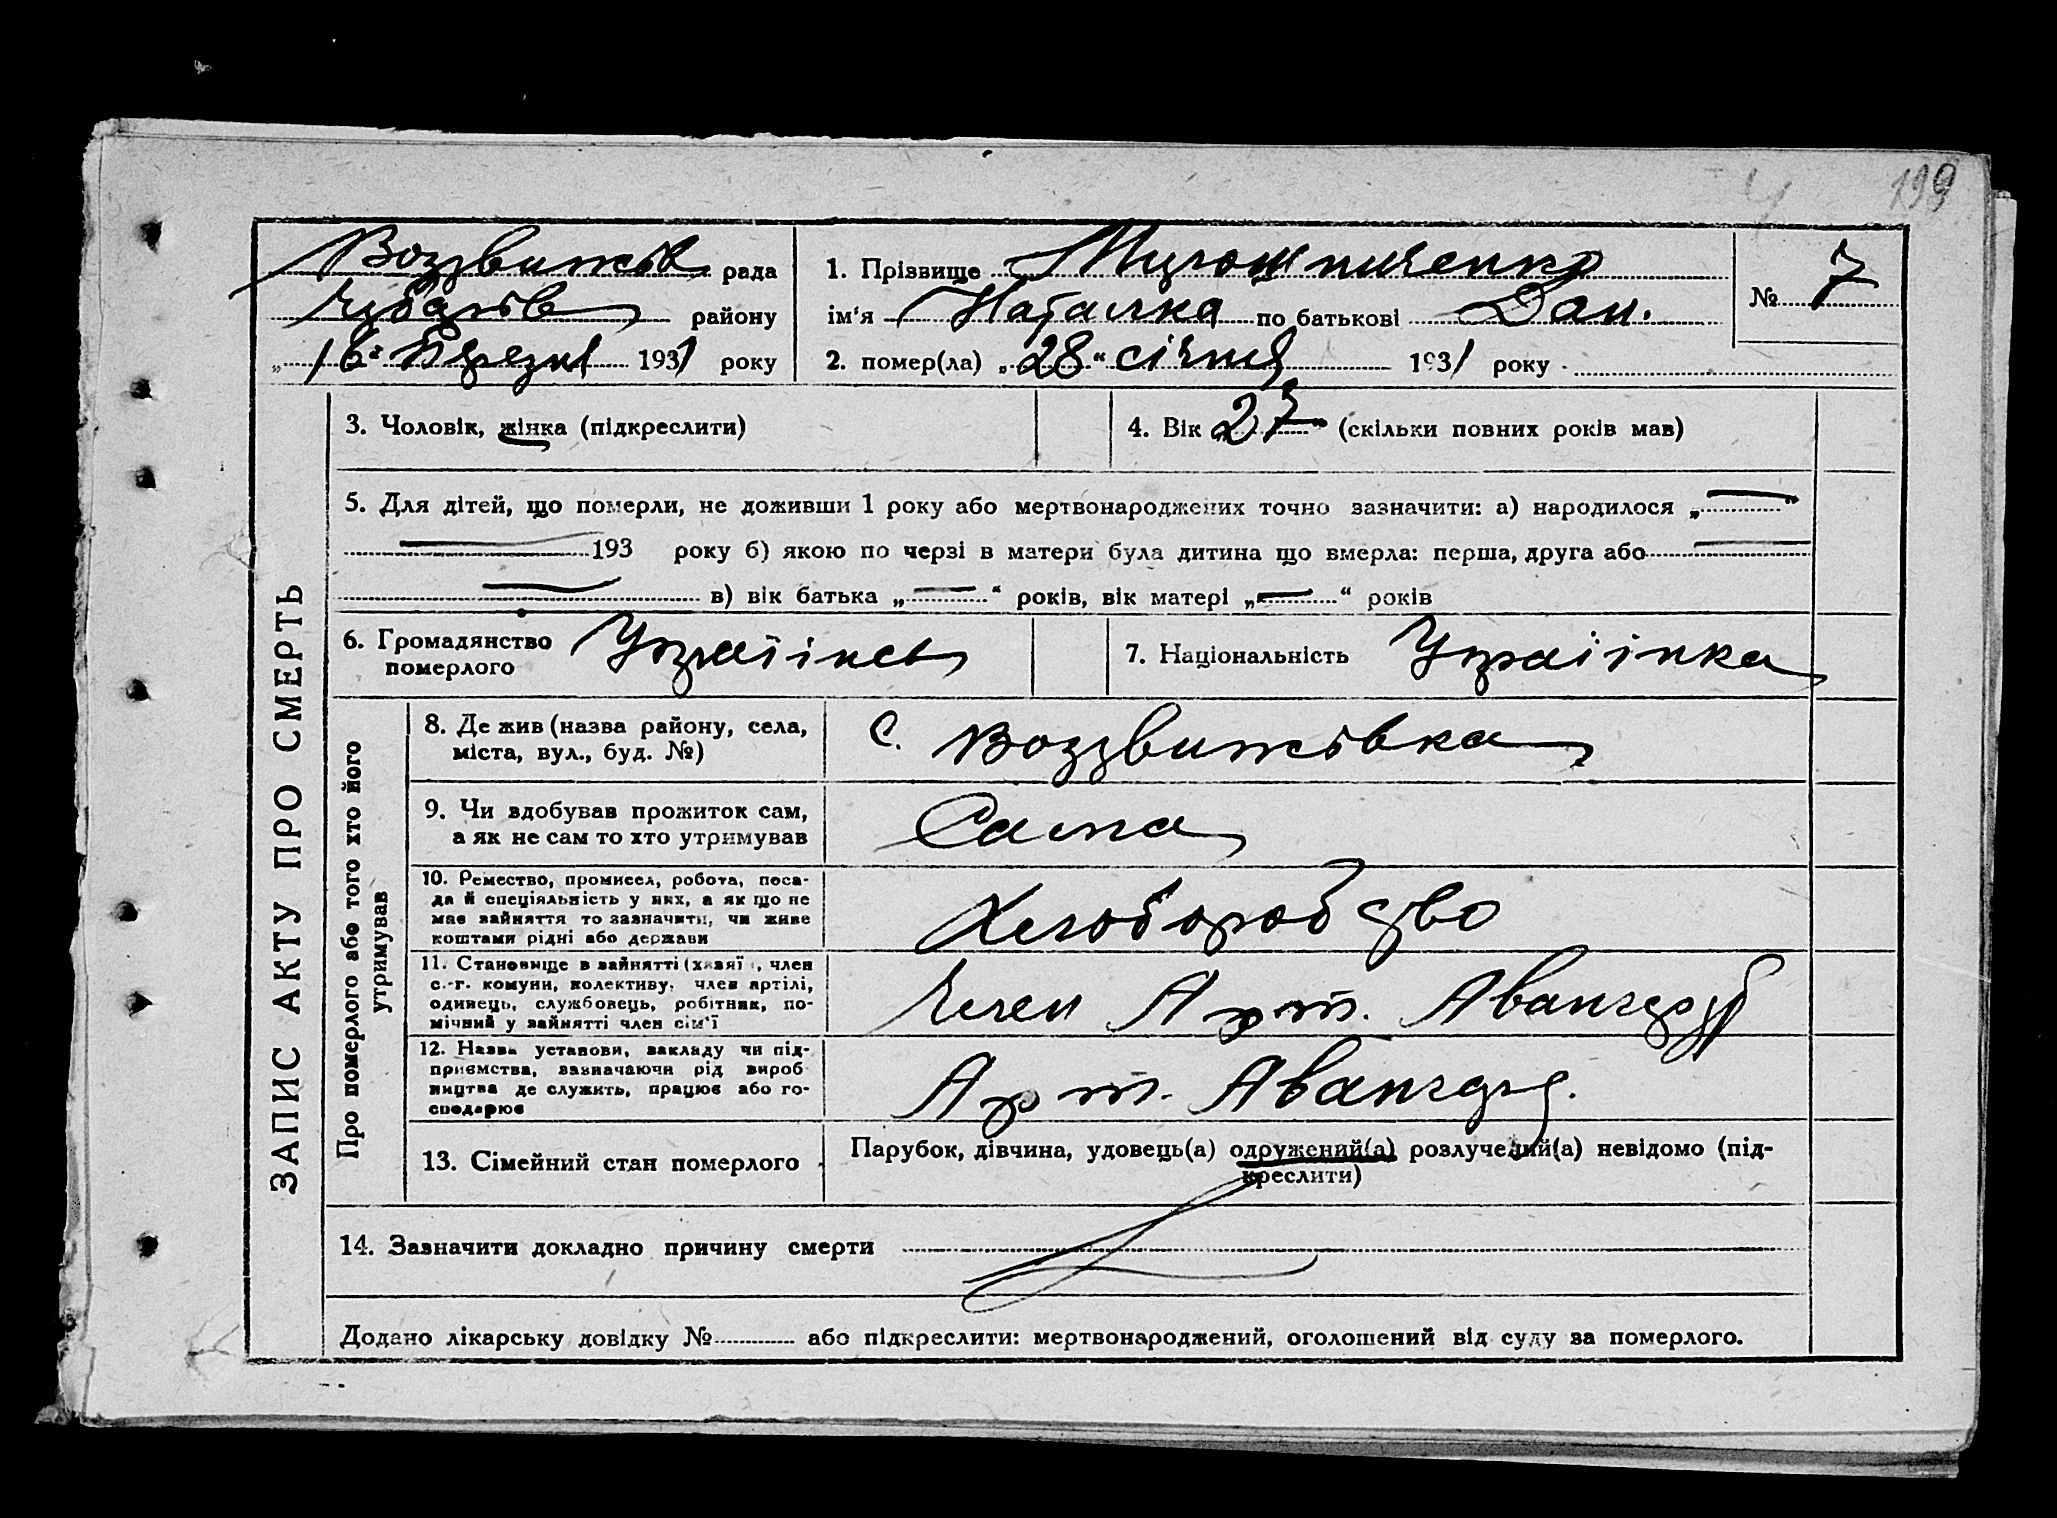 199
Воздвижівс. рада
Чубарівс району
„16“ Березня 1931 року
1. Прізвище Мирошниченко
ім'я Наталка по батькові Дан.
2. помер(ла) „28“ січня 1931 року
№ 7
ЗАПИС АКТУ ПРО СМЕРТЬ
3. Чоловік, жінка (підкреслити)
4. Вік „27“ (скільки повних років мав)
5. Для дітей, що померли, не доживши 1 року або мертвонароджених точно зазначити: а) народилося „—“
— 193 року б) якою по черзі в матери була дитина що вмерла: перша, друга або —
— в) вік батька „—“ років, вік матері „—“ років
6. Громадянство
померлого
Українсь
7. Національність Українка
Про померлого або того хто його
утримував
8. Де жив (назва району, села,
міста, вул., буд. №)
с. Воздвижівка
9. Чи здобував прожиток сам,
а як не сам то хто утримував
Сама
10. Ремество, промисел, робота, поса-
да й спеціяльність у них, а як що не
має зайняття то зазначити, чи живе
коштами рідні або держави
Хлеборобство
11. Становище в зайнятті (хазяї, член
с.-г. комуни, колективу, член артілі,
одинець, службовець, робітник, по-
мічний у зайнятті член сім'ї
Член Арт. Авангард
12. Назва установи, закладу чи під-
приємства, зазначаючи рід вироб
ництва де служить, працює або го-
сподарює
Арт. Авангард.
13. Сімейний стан померлого
Парубок, дівчина, удовець(а) одружений(а) розлучений(а) невідомо (під-
креслити)
14. Зазначити докладно причину смерти
Додано лікарську довідку № або підкреслити: мертвонароджений, оголошений від суду за померлого.